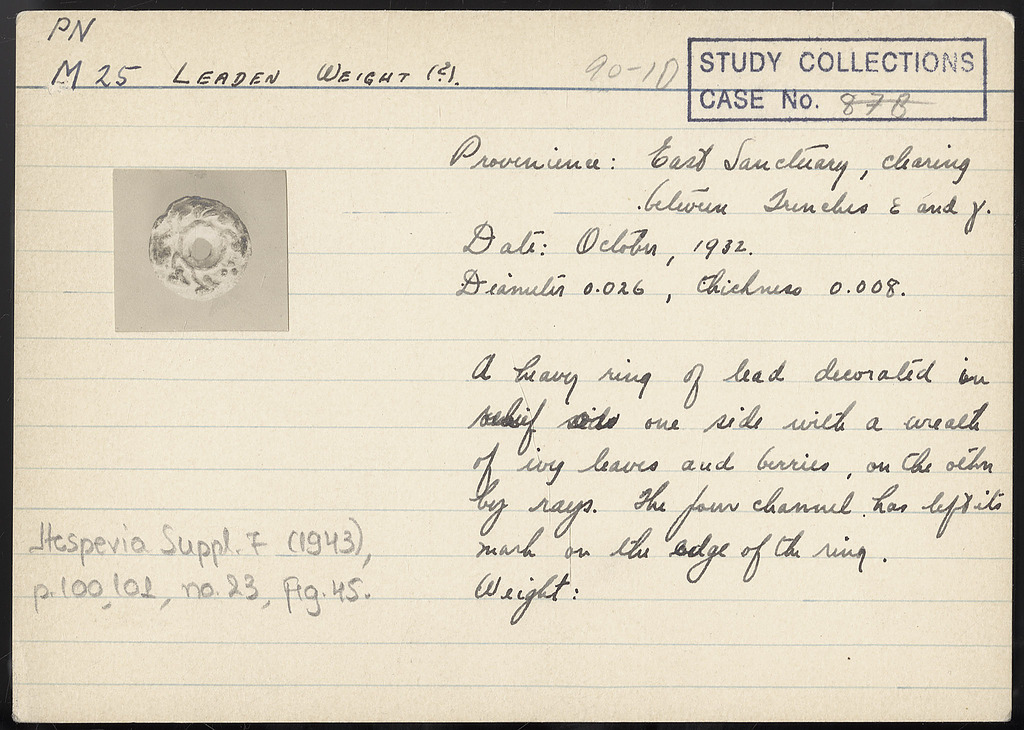 PN
M 25 LEADEN WEIGHT (?).
90-1D
STUDY COLLECTIONS
CASE No. 878
Provenience: East Sanctuary, clearing
between Trenches ε and γ.
Date: October, 1932.
Diameter 0.026, thickness 0.008.
A heavy ring of lead decorated in
relief one side with a wreath
of ivy leaves and berries, on the other
by rays. The pour channel has left its
mark on the edge of the ring.
Weight:
Hesperia Suppl. 7 (1943),
p. 100, 101, no. 23, fig. 45.